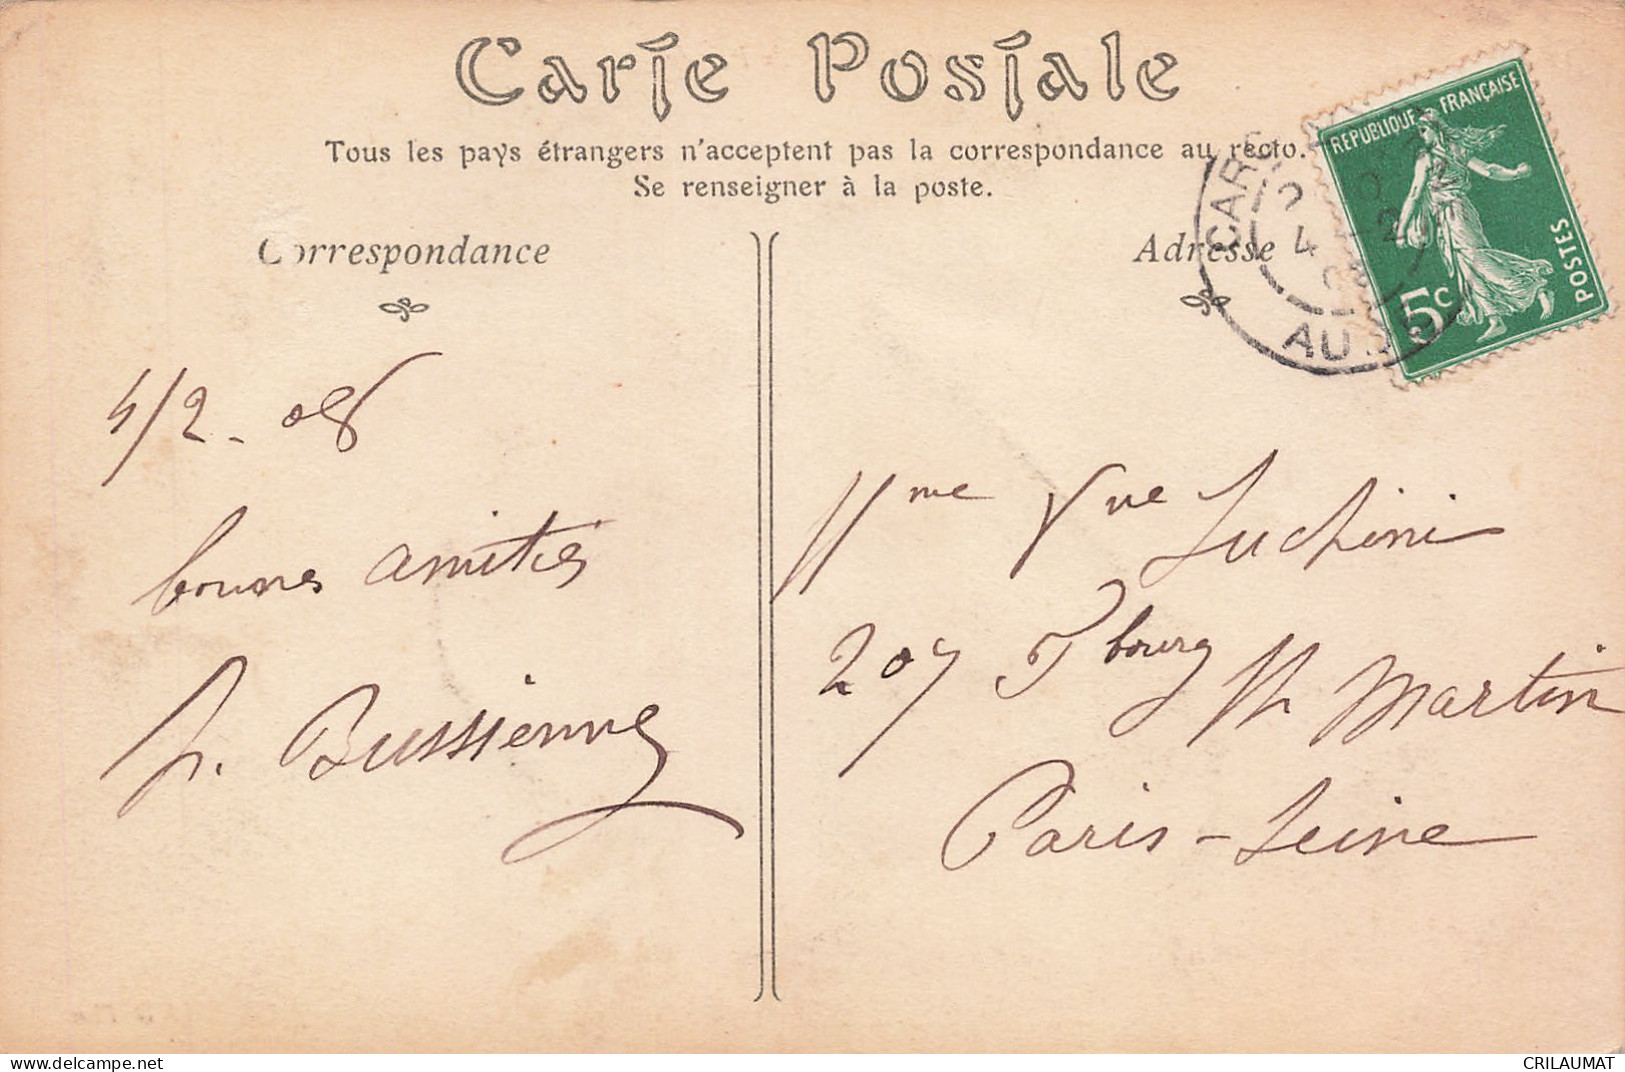 Carte Postale
Tous les pays étrangers n'acceptent pas la correspondance au recto.
Se renseigner à la poste.
Correspondance
Adresse
RÉPUBLIQUE FRANÇAISE
POSTES
5c
CARC
4 2
08
AUDE
4/2 - 08
bonnes amitiés
Bussienne
Mme Vve Luchini
207 Fbourg St Martin
Paris - Seine
www.delcampe.net
CRILAUMAT